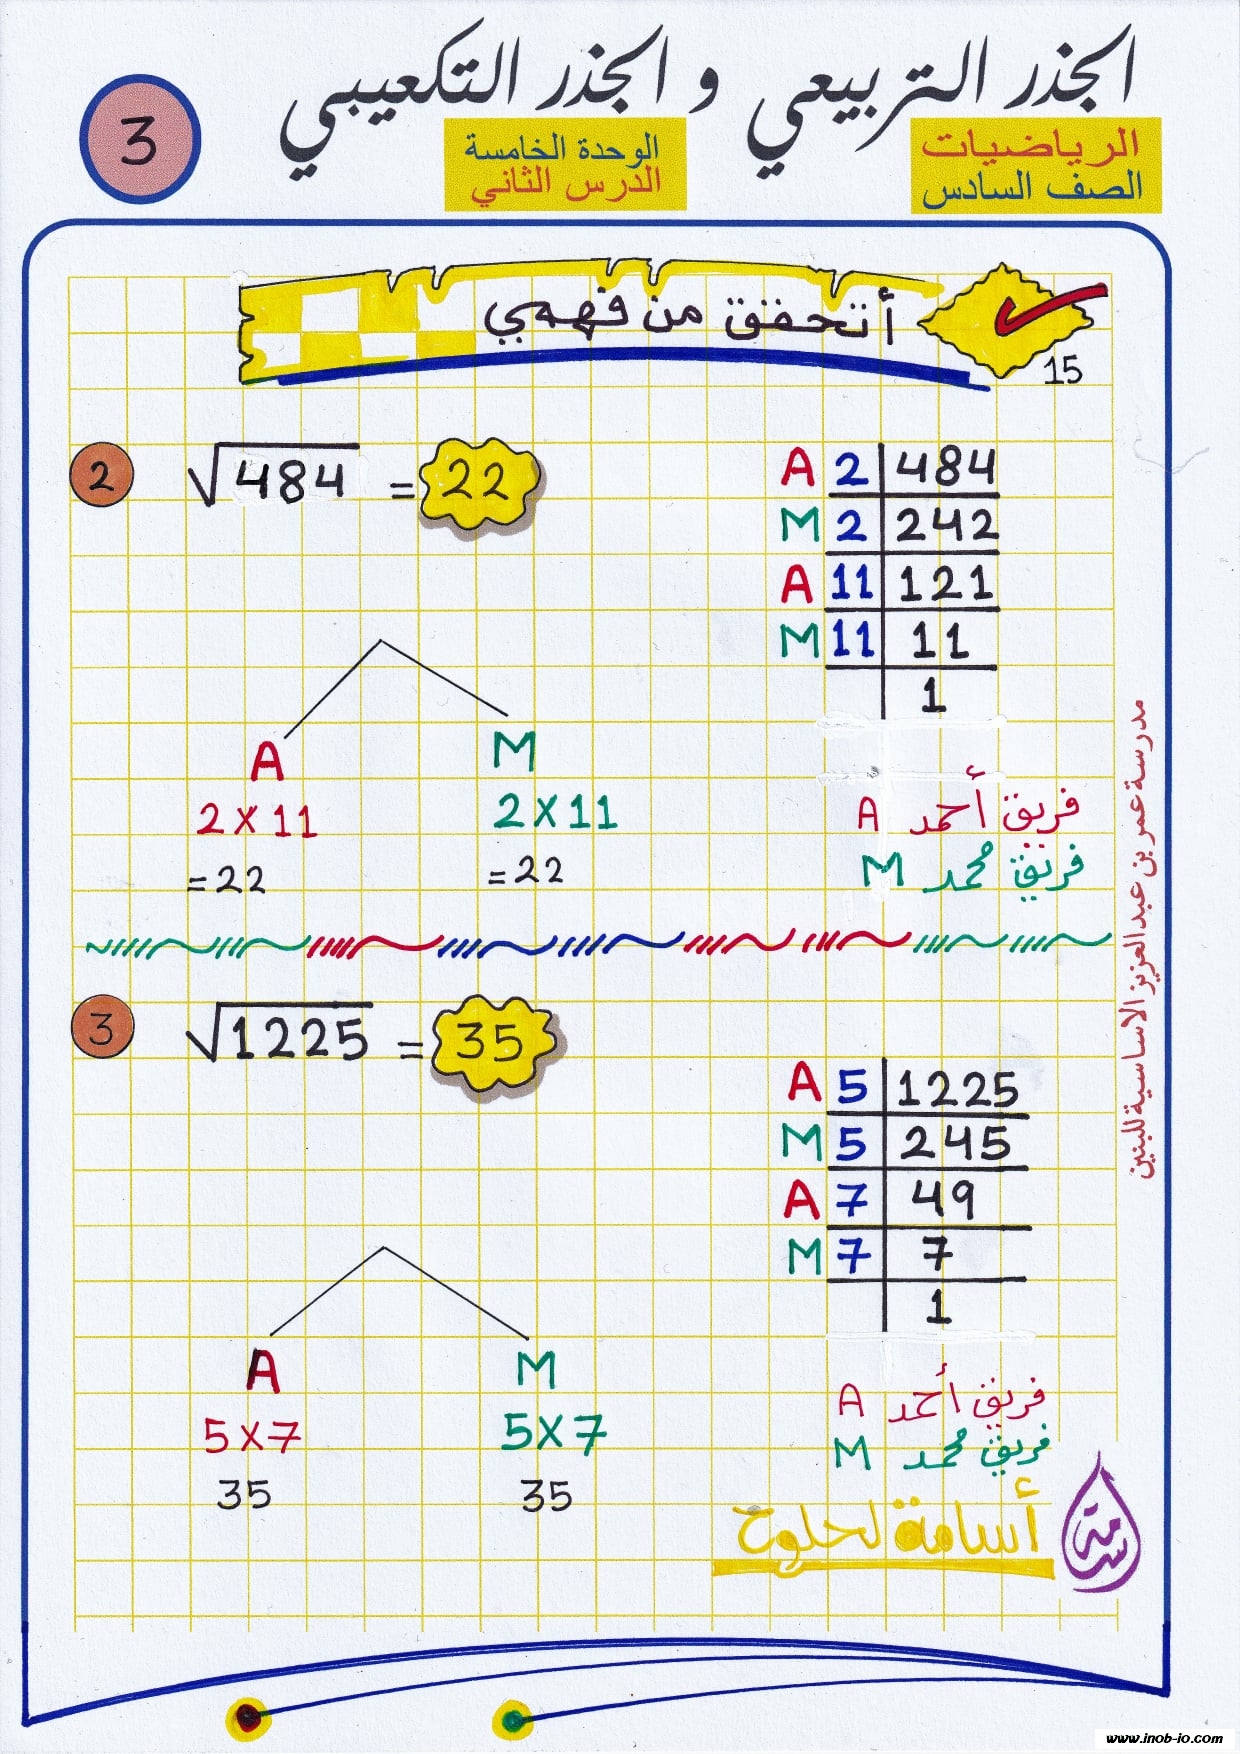 الجذر التربيعي و الجذر التكعيبي
3
الرياضيات
الصف السادس
الوحدة الخامسة
الدرس الثاني
أتحقق من فهمي
15
2
√484 = 22
A 2 | 484
M 2 | 242
A 11 | 121
M 11 | 11
1
A M
2 X 11 2 X 11
= 22 = 22
فريق أحمد A
فريق محمد M
3
√1225 = 35
A 5 | 1225
M 5 | 245
A 7 | 49
M 7 | 7
1
A M
5 X 7 5 X 7
35 35
فريق أحمد A
فريق محمد M
أسامة لحلوح
أسامة
مدرسة عمر بن عبد العزيز الاساسية للبنين
www.inob-io.com